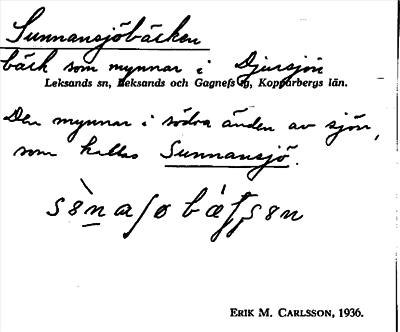 Sunnansjöbäcken
bäck som mynnar i Djursjön
Leksands sn, Leksands och Gagnefs tg, Kopparbergs län.
Den mynnar i södra änden av sjön,
som kallas Sunnansjö.
ERIK M. CARLSSON, 1936.